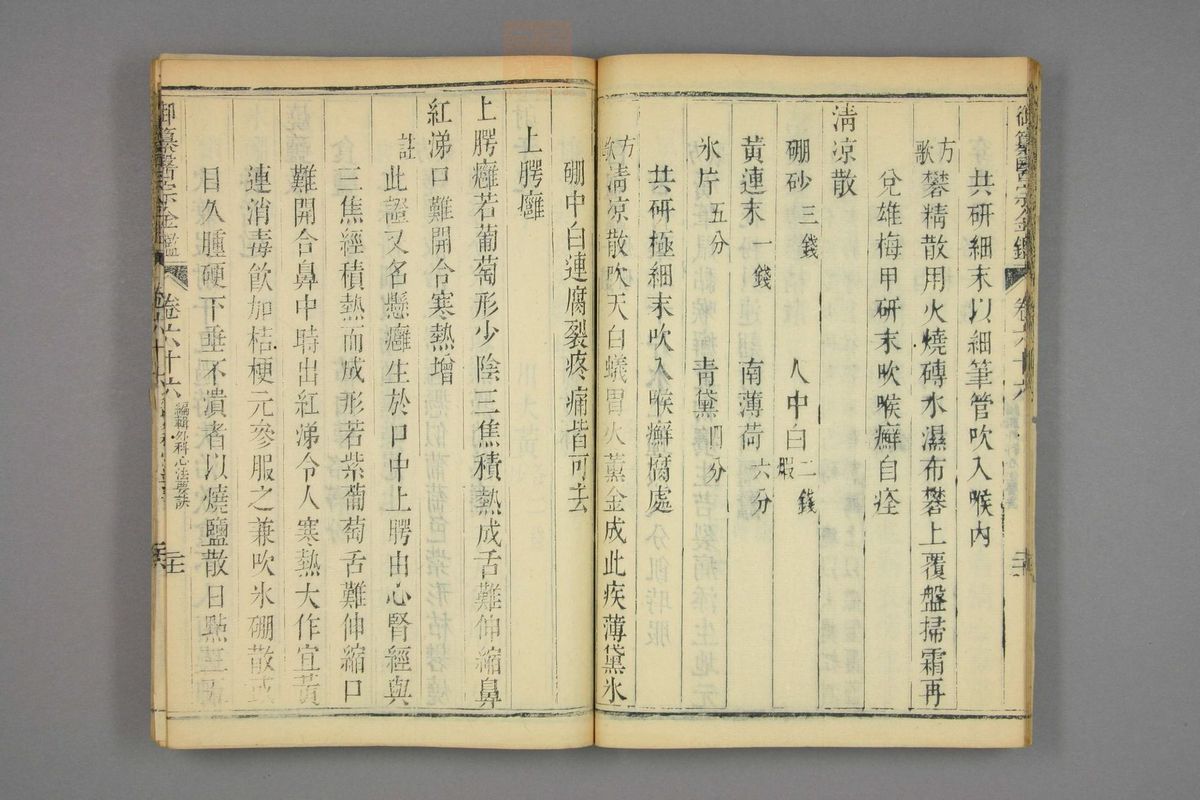 御纂醫宗金鑑 卷六十六
共研細末以細筆管吹入喉內
方歌 礬精散用火燒磚水濕布礬上覆盤掃霜再
兌雄梅甲研末吹喉癬自痊
清凉散
硼砂三錢 人中白二錢煆
黃連末一錢 南薄荷六分
氷片五分 青黛四分
共研極細末吹入喉癬腐處
方歌 清凉散吹天白蟻胃火薰金成此疾薄黛氷
硼中白連腐裂疼痛皆可去
上腭癰
上腭癰若葡萄形少陰三焦積熱成舌難伸縮鼻
紅涕口難開合寒熱增
註 此證又名懸癰生於口中上腭由心腎經與
三焦經積熱而成形若紫葡萄舌難伸縮口
難開合鼻中時出紅涕令人寒熱大作宜黃
連消毒飲加桔梗元參服之兼吹氷硼散或
日久腫硬下垂不潰者以燒鹽散日點三
御纂醫宗金鑑 卷六十六 編輯外科心法要訣